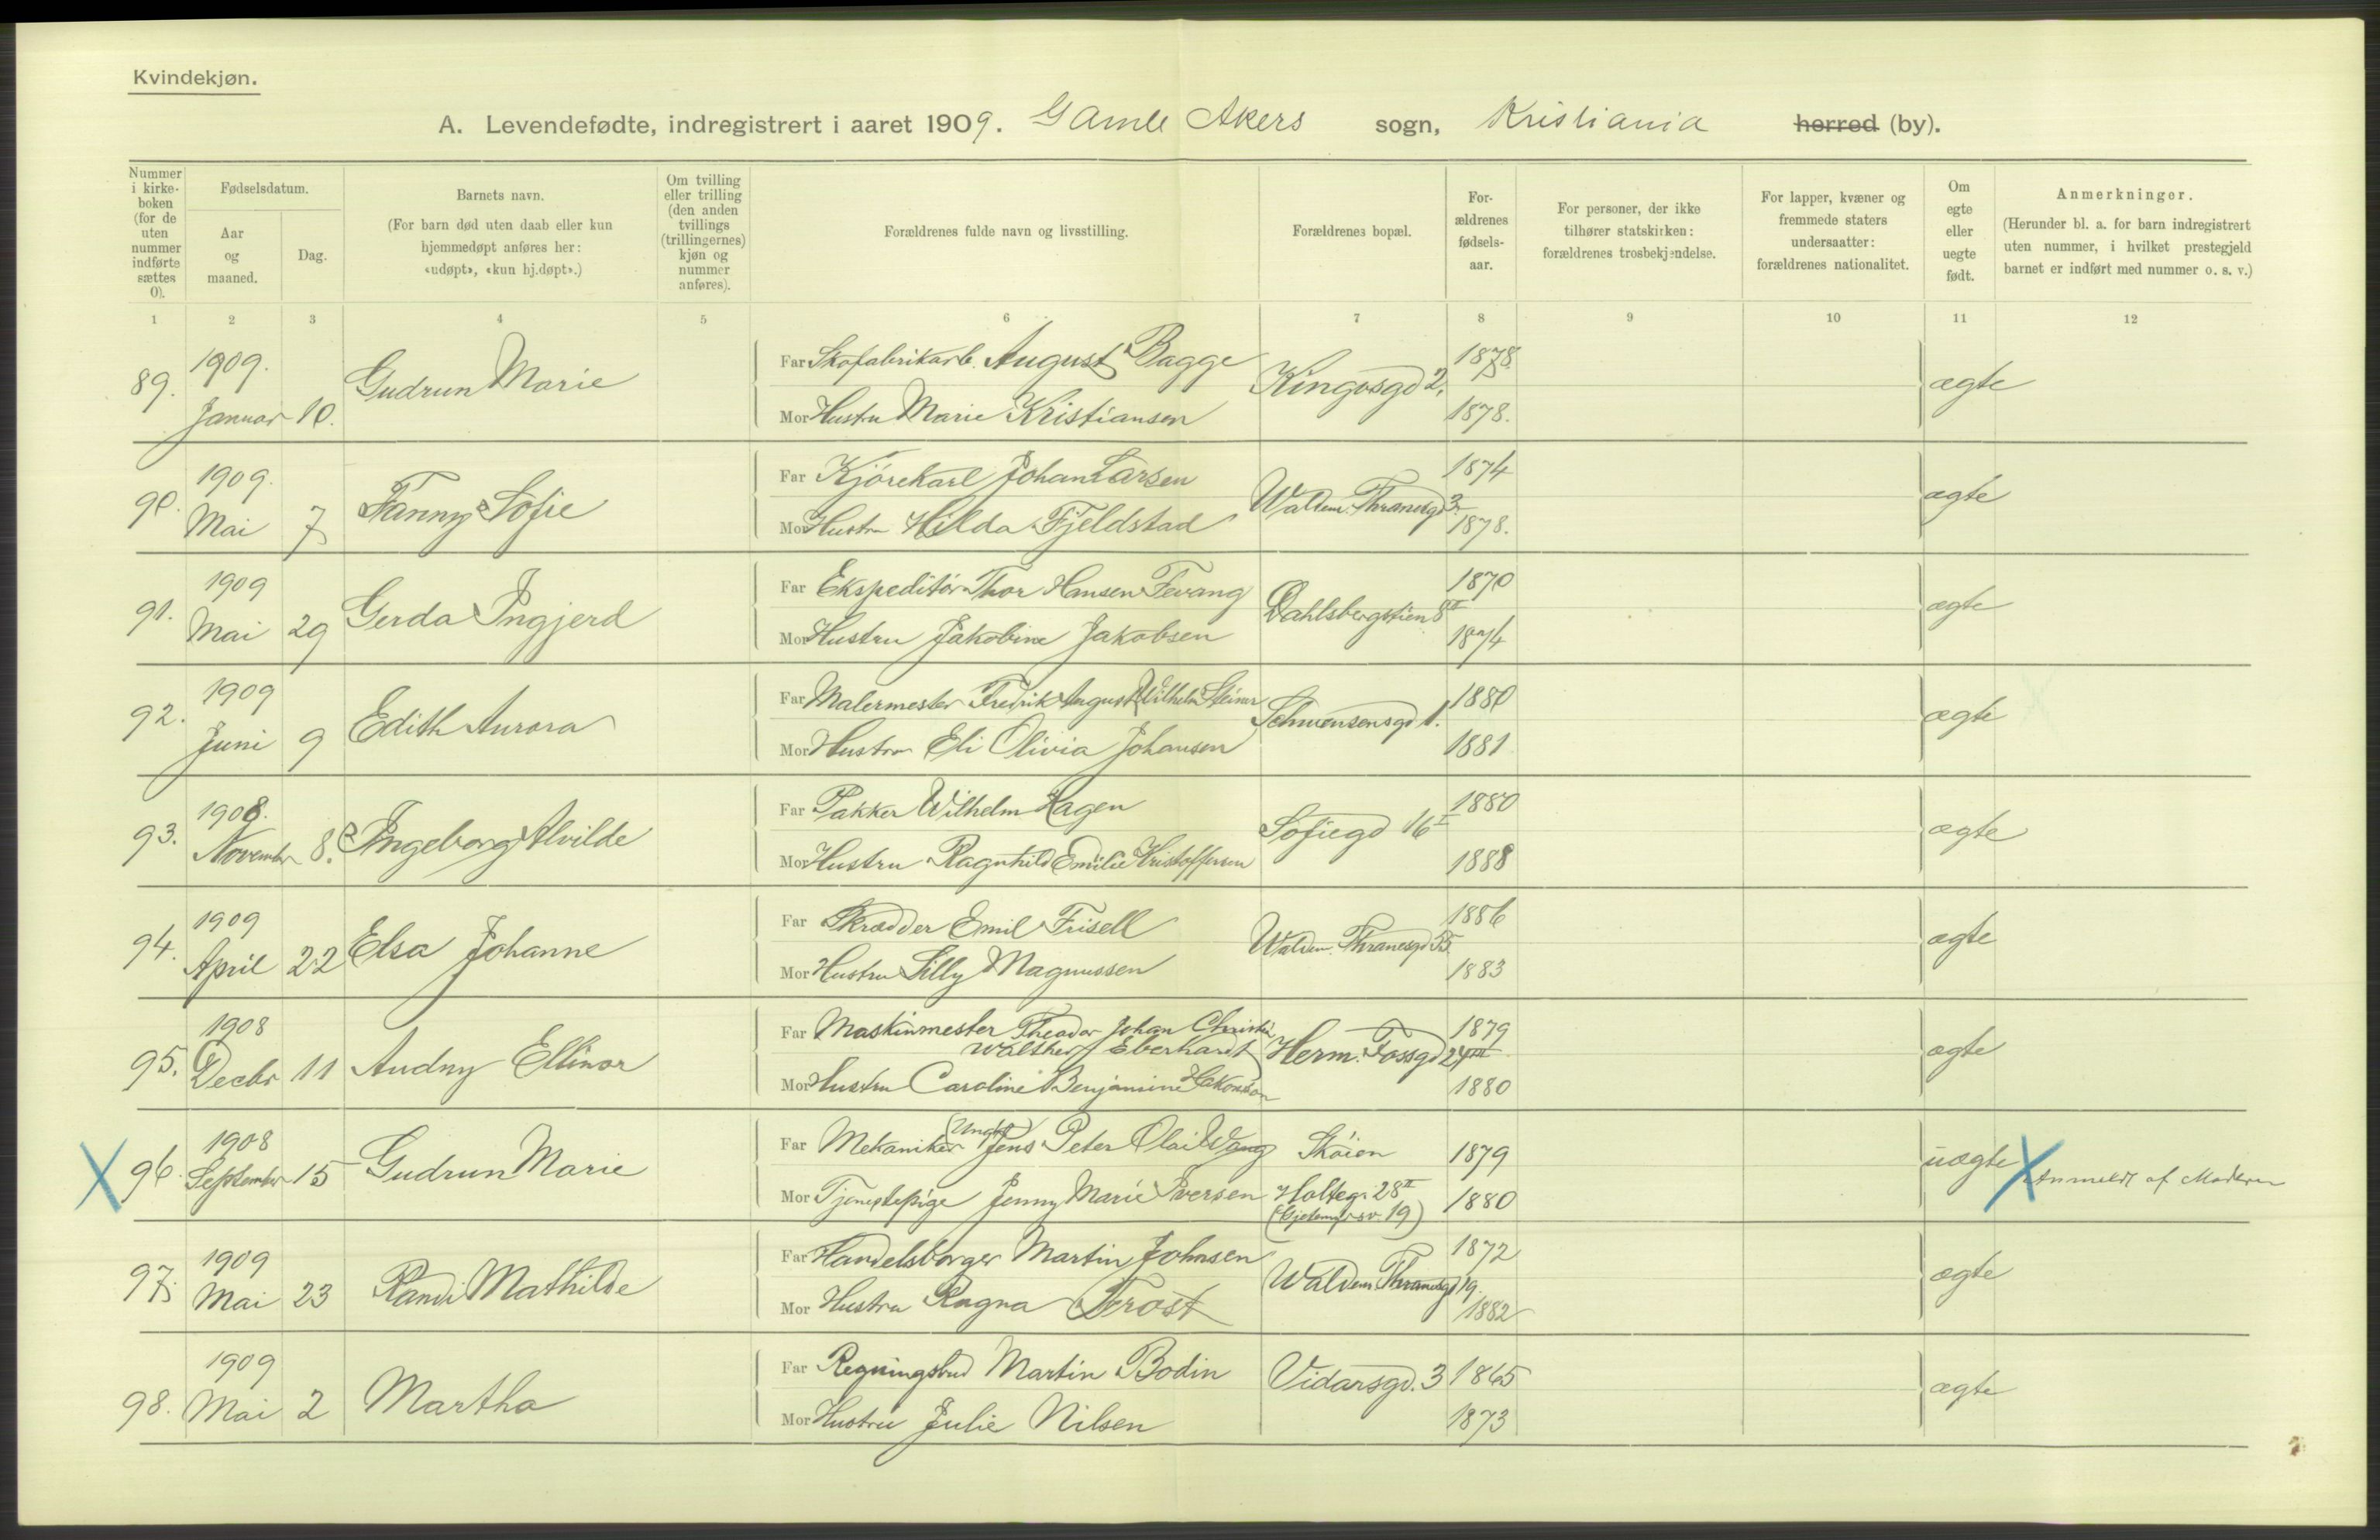 Kvindekjøn.
A. Levendefødte, indregistrert i aaret 1909. Gamle Akers sogn, Kristiania herred (by).
Nummer i kirkeboken (for de uten nummer indførte sættes 0).
Fødselsdatum.
Aar og maaned.
Dag.
Barnets navn.
(For barn død uten daab eller kun hjemmedøpt anføres her: «udøpt», «kun hj.døpt».)
Om tvilling eller trilling (den anden tvillings (trillingernes) kjøn og nummer anføres).
Forældrenes fulde navn og livsstilling.
Forældrenes bopæl.
Forældrenes fødselsaar.
For personer, der ikke tilhører statskirken: forældrenes trosbekjendelse.
For lapper, kvæner og fremmede staters undersaatter: forældrenes nationalitet.
Om egte eller uegte født.
Anmerkninger.
(Herunder bl. a. for barn indregistrert uten nummer, i hvilket prestegjeld barnet er indført med nummer o. s. v.)
1 2 3 4 5 6 7 8 9 10 11 12
89. 1909. Januar 10. Gudrun Marie
Far Skofabrikarb. August Bagge Kingosgd 2. 1878.
Mor Hustru Marie Kristiansen 1878. ægte
90. 1909. Mai 7 Fanny Sofie
Far Kjörekarl Johan Larsen Waldem. Thranesgd 3. 1874
Mor Hustru Hilda Fjeldstad 1878. ægte
91. 1909 Mai 29 Gerda Ingjerd
Far Ekspeditör Thor Hansen Fevang Dahlsbergstien 8 II 1870
Mor Hustru Jakobine Jakobsen 1874 ægte
92. 1909 Juni 9 Edith Aurora
Far Malermester Fredrik August Wilhelm Steiner Schwensensgd 1. 1880
Mor Hustru Eli Olivia Johansen 1881 ægte
93. 1908. November 8. Ingeborg Alvilde
Far Pakker Wilhelm Hagen Sofiegd 16 I 1880
Mor Hustru Ragnhild Emilie Kristoffersen 1888 ægte
94. 1909 April 22 Elsa Johanne
Far Skrædder Emil Frisell Waldem. Thranesgd 55. 1886
Mor Hustru Lilly Magnussen 1883 ægte
95. 1908 Decbr 11 Audny Ellinor
Far Maskinmester Theodor Johan Christian
Walther Eberhardt Herm. Fossgd 24 III 1879
Mor Hustru Caroline Benjamine Hakonsen 1880 ægte
X 96. 1908 September 15 Gudrun Marie
Far Mekaniker (Ungk.) Jens Peter Olai Wang Skøien 1879
Mor Tjenestepige Jenny Marie Iversen Holtegt. 28 II 1880 uægte X Anmeldt af Moderen
97. 1909 Mai 23 Randi Mathilde
Far Handelsborger Martin Johnsen Waldem. Thranesgd 19. 1872
Mor Hustru Ragna Frost 1882 ægte
98. 1909 Mai 2 Martha
Far Regningsbud Martin Bodin Vidarsgd. 3 1865
Mor Hustru Julie Nilsen 1873 ægte